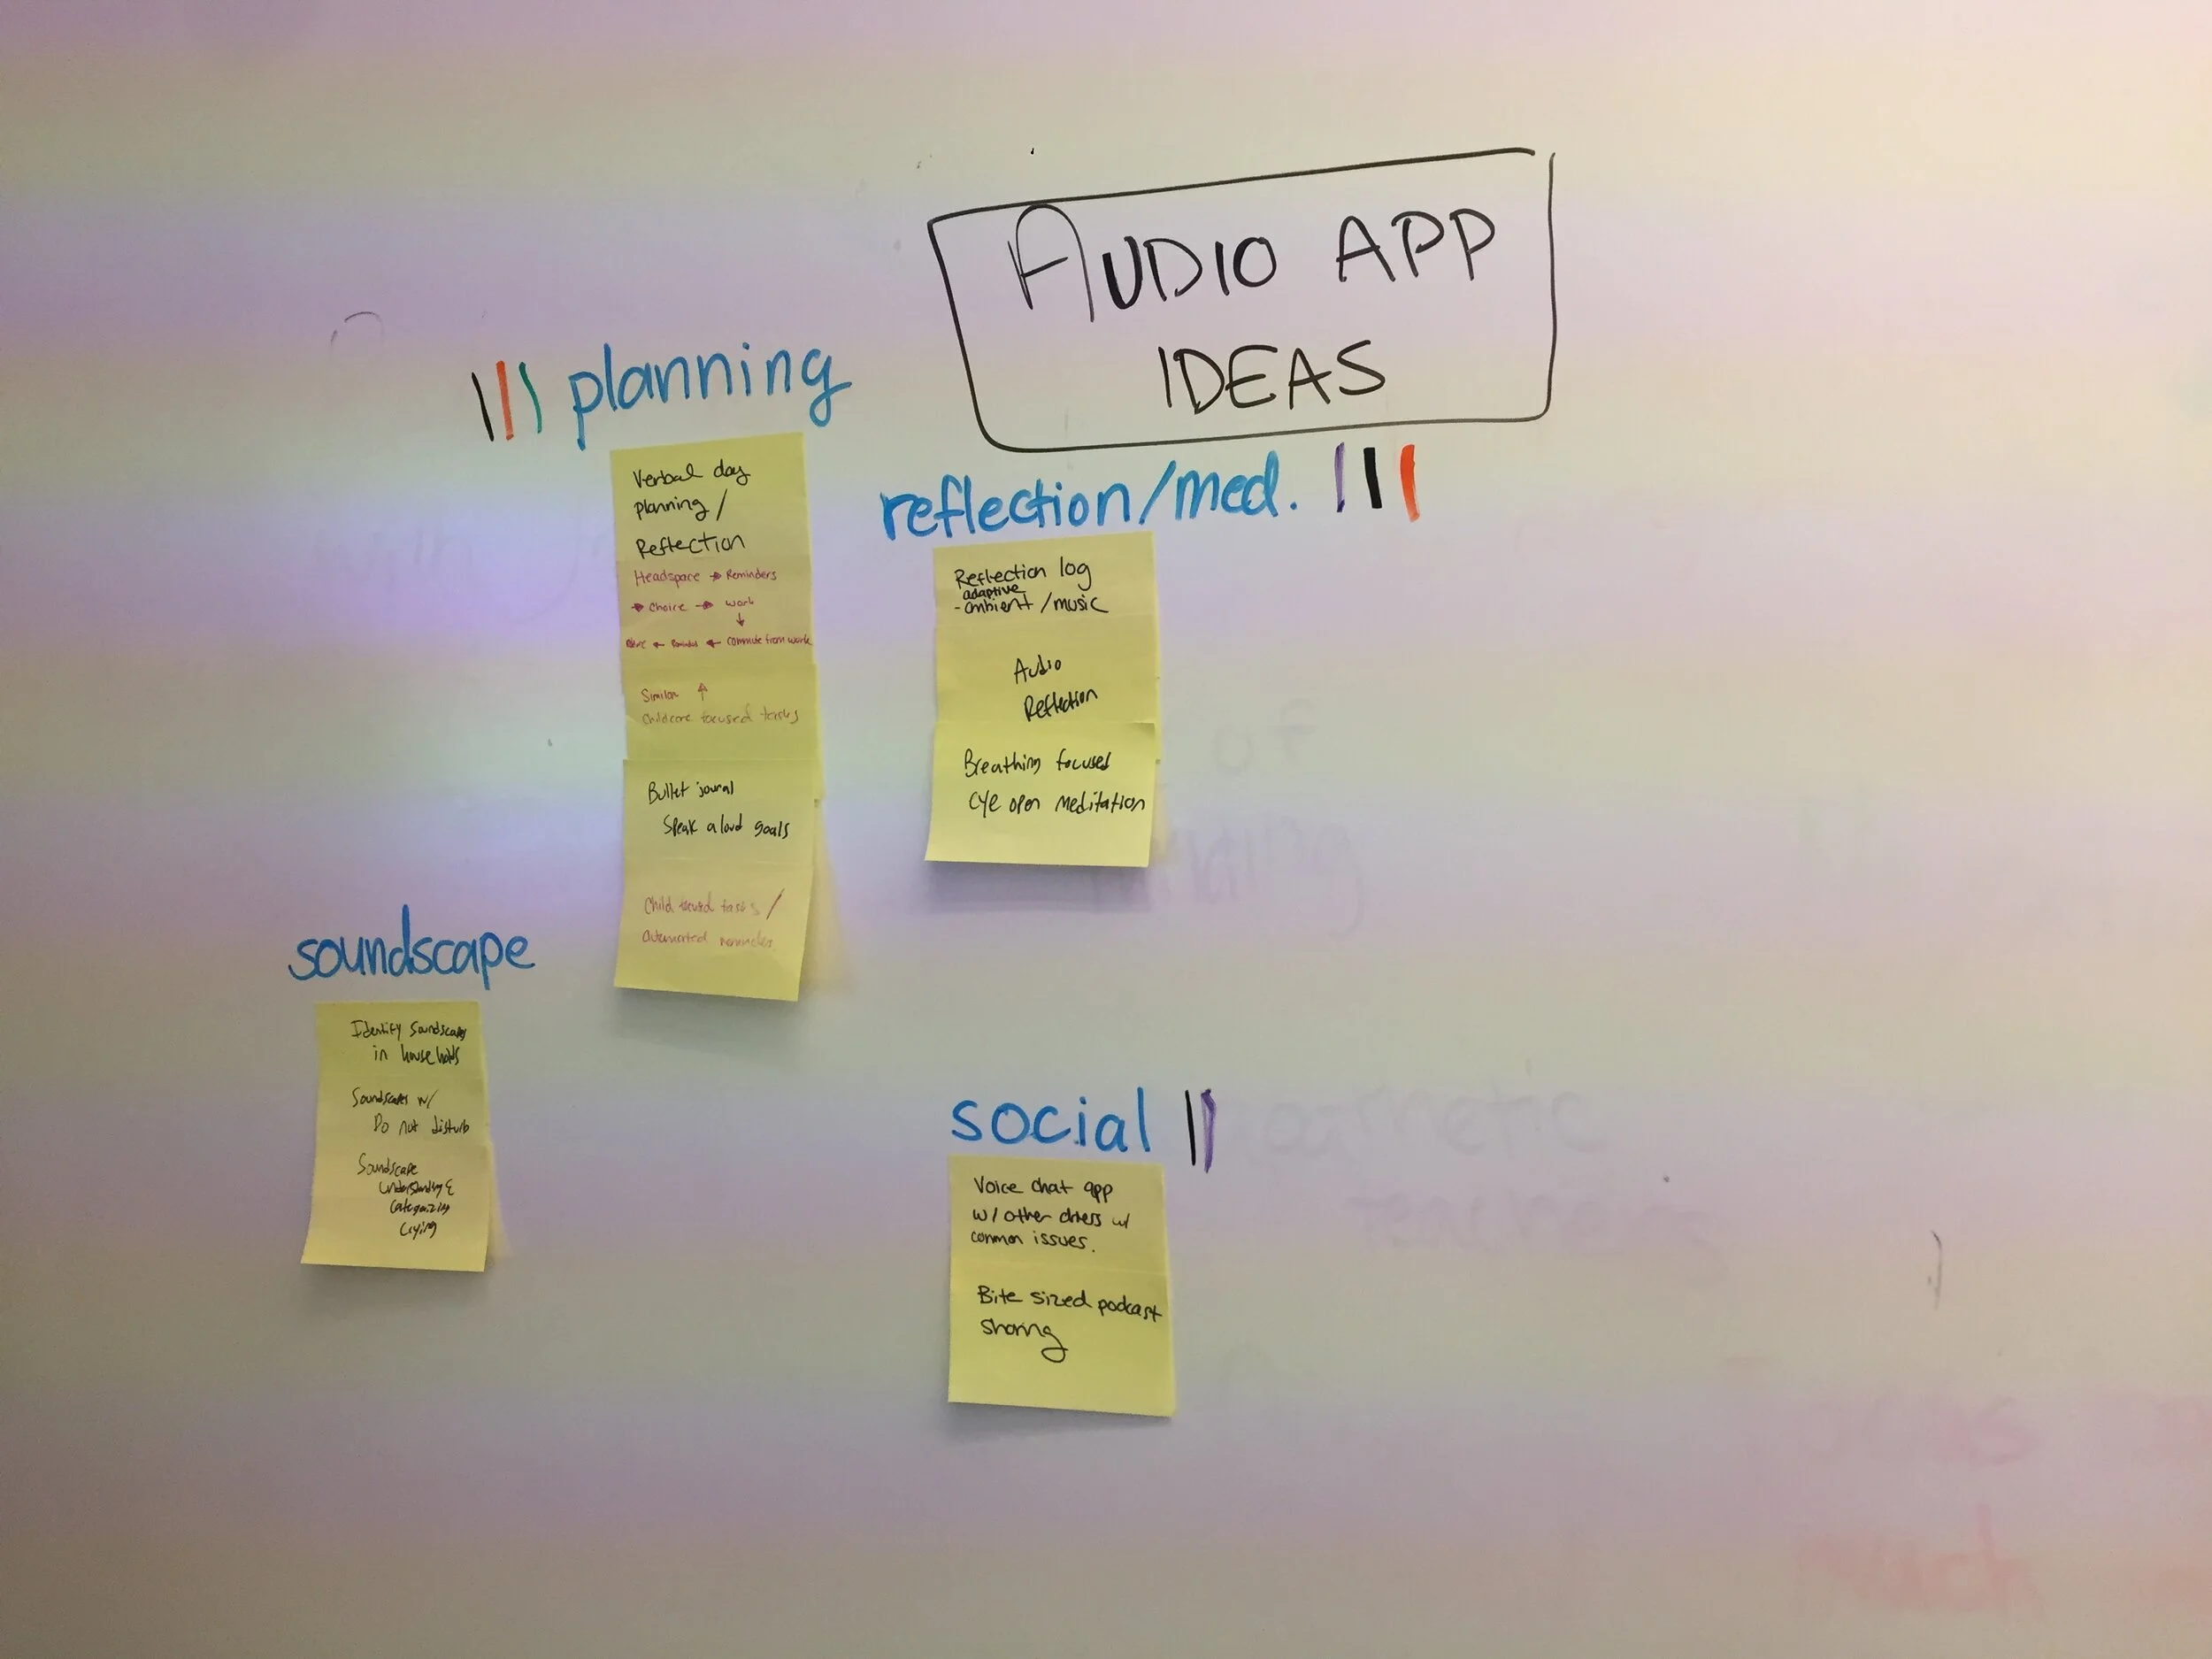 AUDIO APP
IDEAS
planning
Verbal day
planning /
Reflection
Headspace → Reminders
→ Choice → work
↓
← ← commute from work
Similar ↑
Childcare focused tasks
Bullet jounal
Speak aloud goals
Child focused tasks /
automated reminders
reflection/med.
Reflection log
adaptive
- ambient / music
Audio
Reflection
Breathing focused
eye open meditation
soundscape
Identify Soundscapes
in households
Soundscapes w/
Do not disturb
Soundscape
understanding &
categorizing
crying
social
Voice chat app
w/ other drivers w/
common issues.
Bite sized podcast
sharing